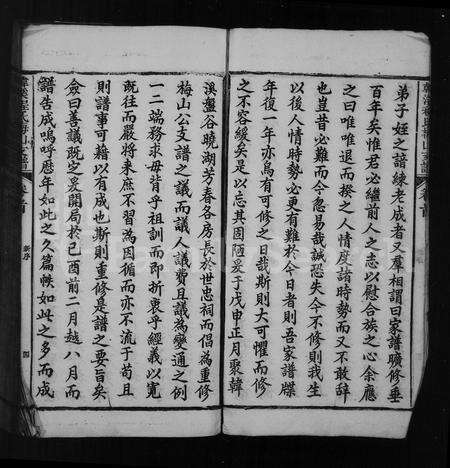 弟子姪之諳練老成者又羣相謂曰家譜曠修垂
百年矣惟君必繼前人之志以慰合族之心余應
之曰唯唯退而揆之人情度諸時勢而又不敢辞
也豈昔必難而今忽易哉誠恐失今不修則我生
以後人情時勢必更有難於今日者則吾家譜牒
年復一年亦烏有可修之日哉斯則大可懼而修
之不容緩矣是以忘其固陋爰于戊申正月聚韓
溪盤谷曉湖芳春各房長於世忠祠而倡為重修
梅山公支譜之議而議人議費且議為變通之例
一二端務求毋背乎祖訓而即折衷乎經義以寬
既往而嚴將来庶不習為因循而亦不流于苟且
則譜事可藉以有成也斯則重修是譜之要旨矣
僉曰善議既定爰開局於己酉前二月越八月而
譜告成嗚呼歷年如此之久篇帙如此之多而成
新序
四